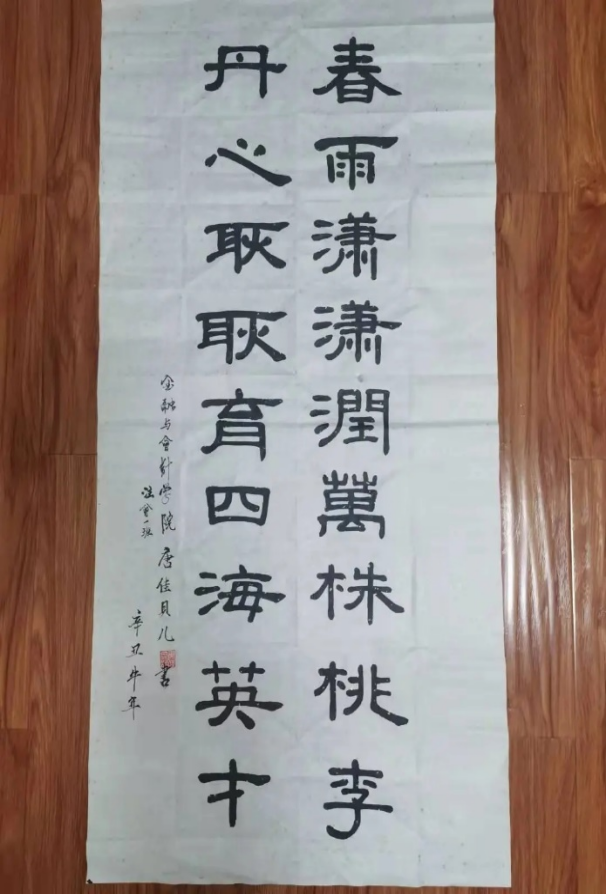 春雨瀟瀟潤萬株桃李
丹心耿耿育四海英才
金融与會計学院 唐佳貝儿 書
註會一班
辛丑牛年